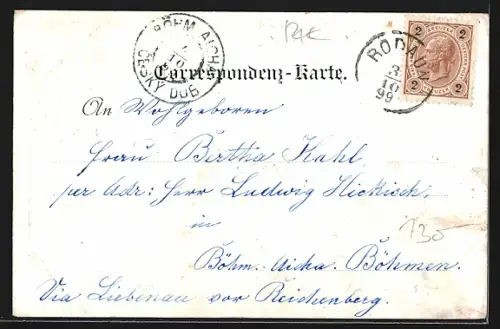 BÖHM. AICHA
10
ČESKÝ DUB
RODAUN
3
10
99
2 2
2 2
Correspondenz-Karte.
An Wohlgeboren
Frau Bertha Kahl
per Adr: Herr Ludwig Hickisch
in
130
Böhm. Aicha. Böhmen.
Via Liebenau vor Reichenberg.